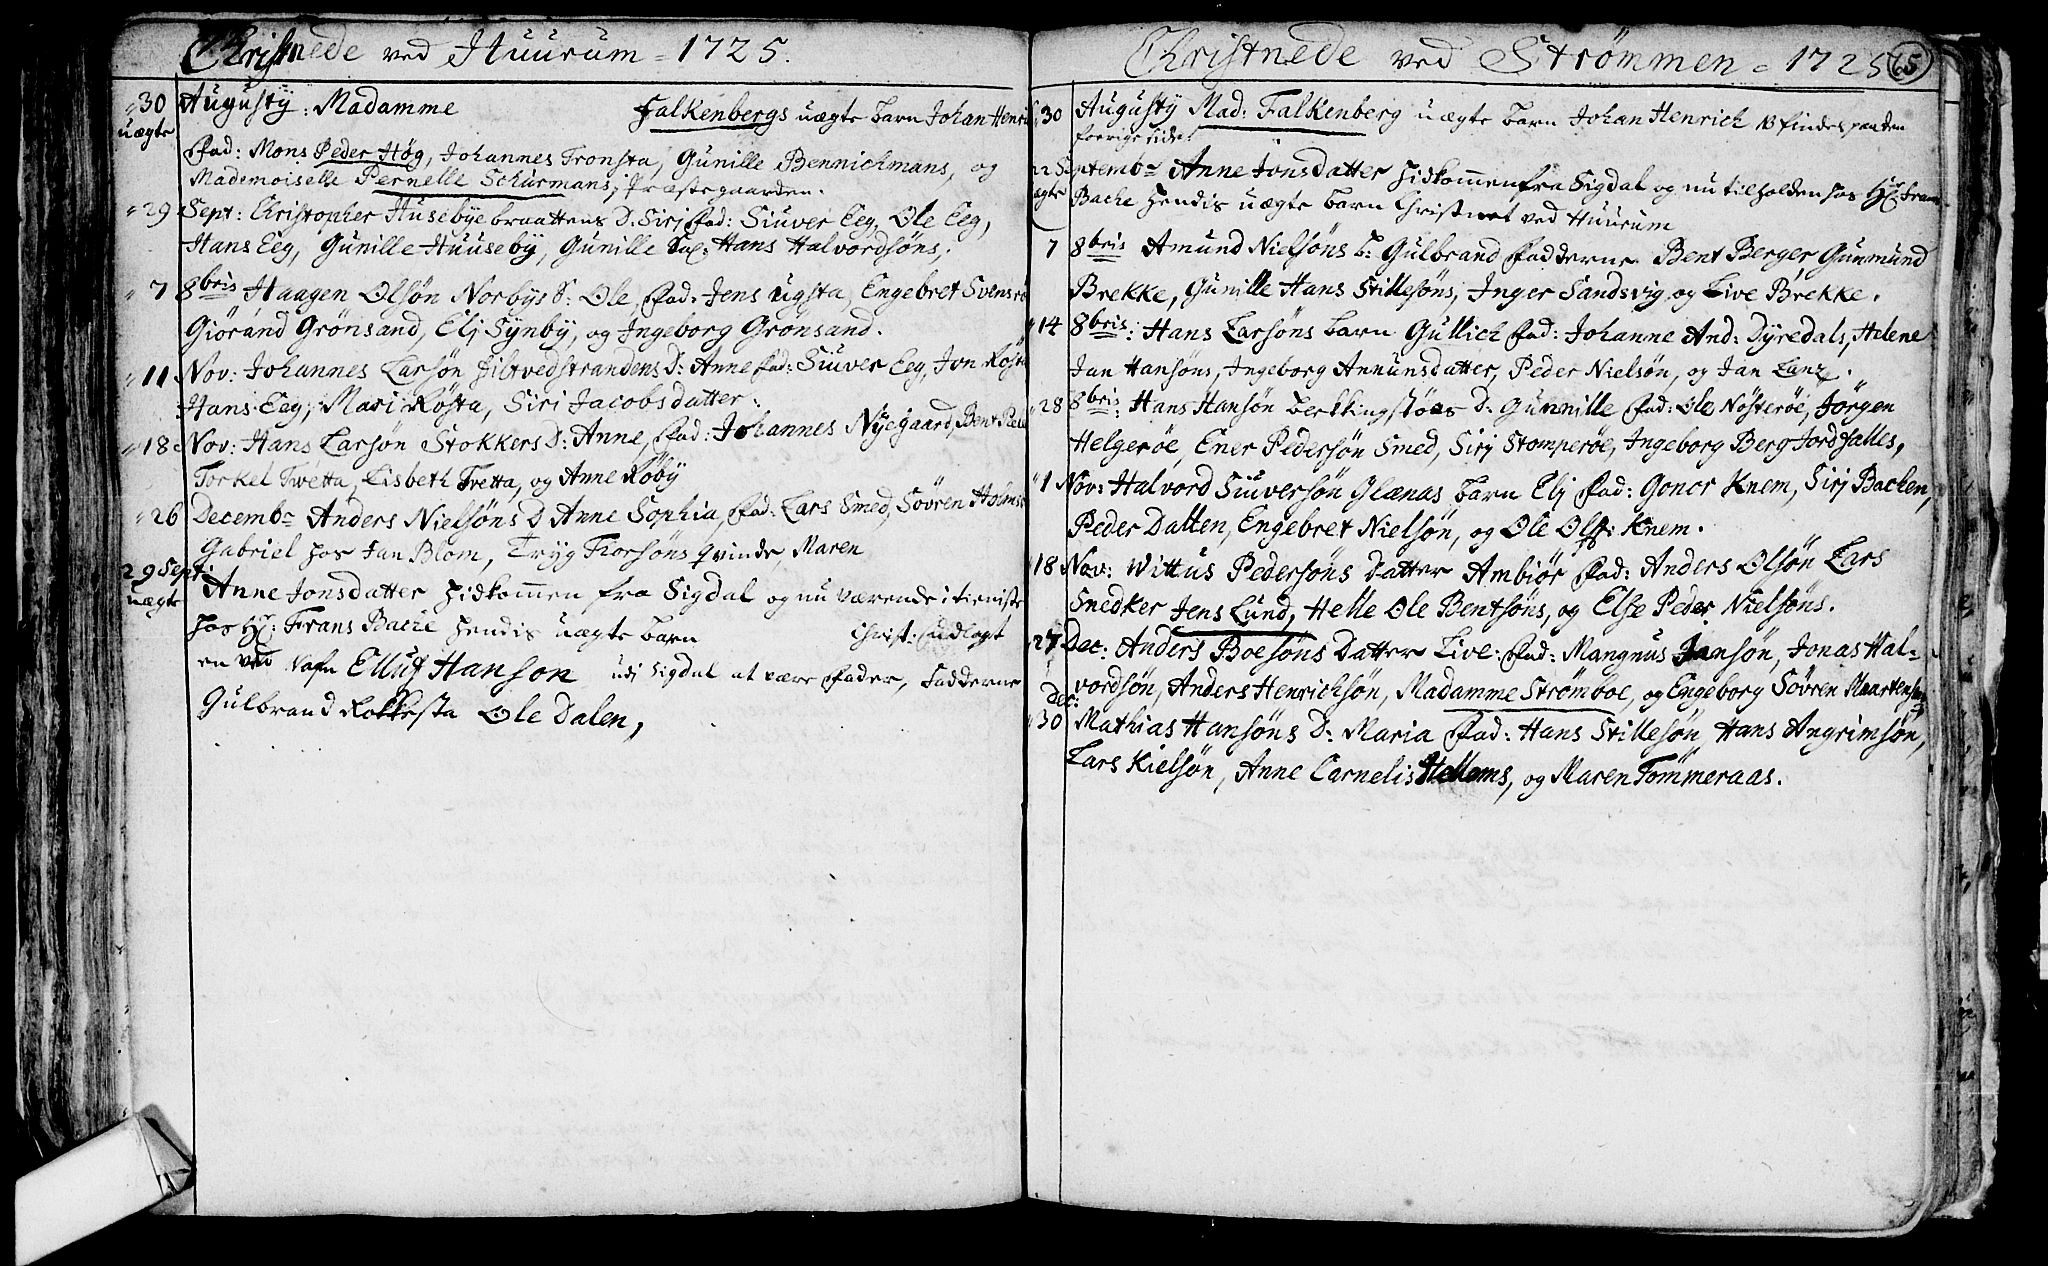 Christnede ved Huurum = 1725.
30 Augusty: Madamme Falkenbergs uægte barn Johan Henri
uægte
Fad: Mons Peder Høg, Johannes Tronsta, Gunille Bennichmans, og
Mademoiselle Pernelle Schurmans, i Præstegaarden.
29 Sept: Christopher Husebye braattens D. Sirj Fad: Siuver Eeg, Ole Eeg,
Hans Eeg, Gunille Huuseby, Gunille Hans Halvordsøns,
7 8bris Haagen Olsøn Norbys S: Ole, Fad: Jens ugsta, Engebret Svens
Giørand Grønsand, Elj Synby, og Ingeborg Grønsand.
11 Nov: Johannes Larsøn filtvedstrandens D: Anne Fad: Siuver Eeg, Jon Røsta
Hans Eeg, Mari Røsta, Siri Jacobsdatter.
18 Nov: Hans Larsøn Stokkers D: Anne, Fad: Johannes Nyegaard, Bent
Torkel Tvetta, Lisbeth Tvetta, og Anne Røby
26 Decembr Anders Nielsøns D Anne Sophia, Fad: Lars Smed, Søvren Holms
Gabriel hos Jan Blom, Tryg Tiorsøns qvinde, Maren
29 Sept: Anne Jonsdatter hidkommen fra Sigdal og nu værende i tieniste
uægte
hos Hr: Frans Bache hendis uægte barn Christ: udlagt
en ved Nafn Elluf Hanson udj Sigdal at være Fader, Fadderne
Gulbrand Rokkesta Ole Dalen,
Christnede ved Strømmen = 1725 65
30 Augusty Mad: Falkenberg uægte barn Johan Henrich NB findes paa den
forrige side.
22 Septembr Anne Jonsdatter hidkommen fra Sigdal og nu tilholden hos Hr Frans
ægte Bache hendis uægte barn Christnet ved Huurum
7 8bris Amund Nielsøns b: Gulbrand Fadderne Bent Berger Gunmund
Brekke, Gunille Hans Stillesøns, Inger Sandsvig og Live Brekke.
14 8bris: Hans Larsøns barn Gullich Fad: Johanne And: Dyredals, Helene
Jan Hansøns, Ingeborg Annunsdatter, Peder Nielsøn, og Jan Lanz.
28 8bris: Hans Hansøn bekkingstøes D: Gunnille Fad: Ole Nøsterøe, Jørgen
Helgerøe, Ener Pedersøn Smed, Sirj Stomperøe, Ingeborg Berg Jordfalles,
1 Nov: Halvord Siuversøn Glænas barn Elj Fad: Gonor Knem, Sirj Bachen,
Peder Datten, Engebret Nielsøn, og Ole Ols: Knem.
18 Nov: Wittus Pedersøns Datter Ambiør Fad: Anders Olsøn Lars
Snedker Jens Lund, Helle Ole Bentsøns, og Else Peder Nielsøns.
27 Dec: Anders Boesøns Datter Live: Fad: Mangnus Jansøn, Jonas Hal-
vordsøn, Anders Henrichsøn, Madamme Strømboe, og Engeborg Søvren Maartensøns
Dec:
30 Mathias Hansøns D: Maria Fad: Hans Stillesøn Hans Angrimsøn,
Lars Kielsøn, Anne Carnelis Hellems, og Maren Tømmeraas.